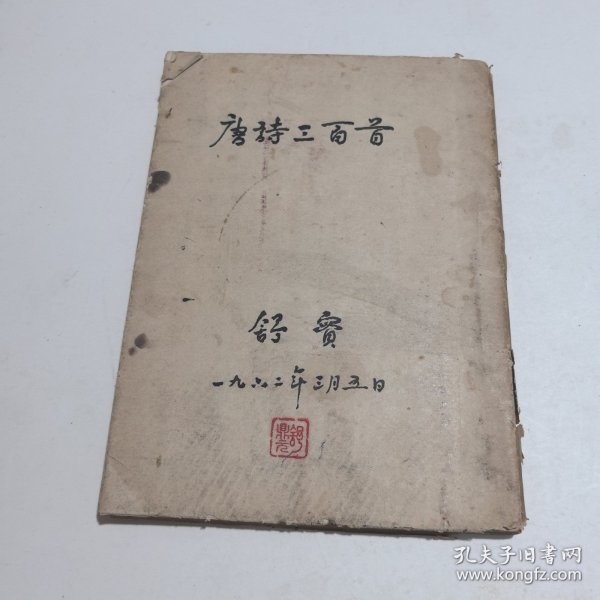 唐詩三百首
舒寶
一九六二年三月五日
孔夫子旧书网
www.kongfz.com